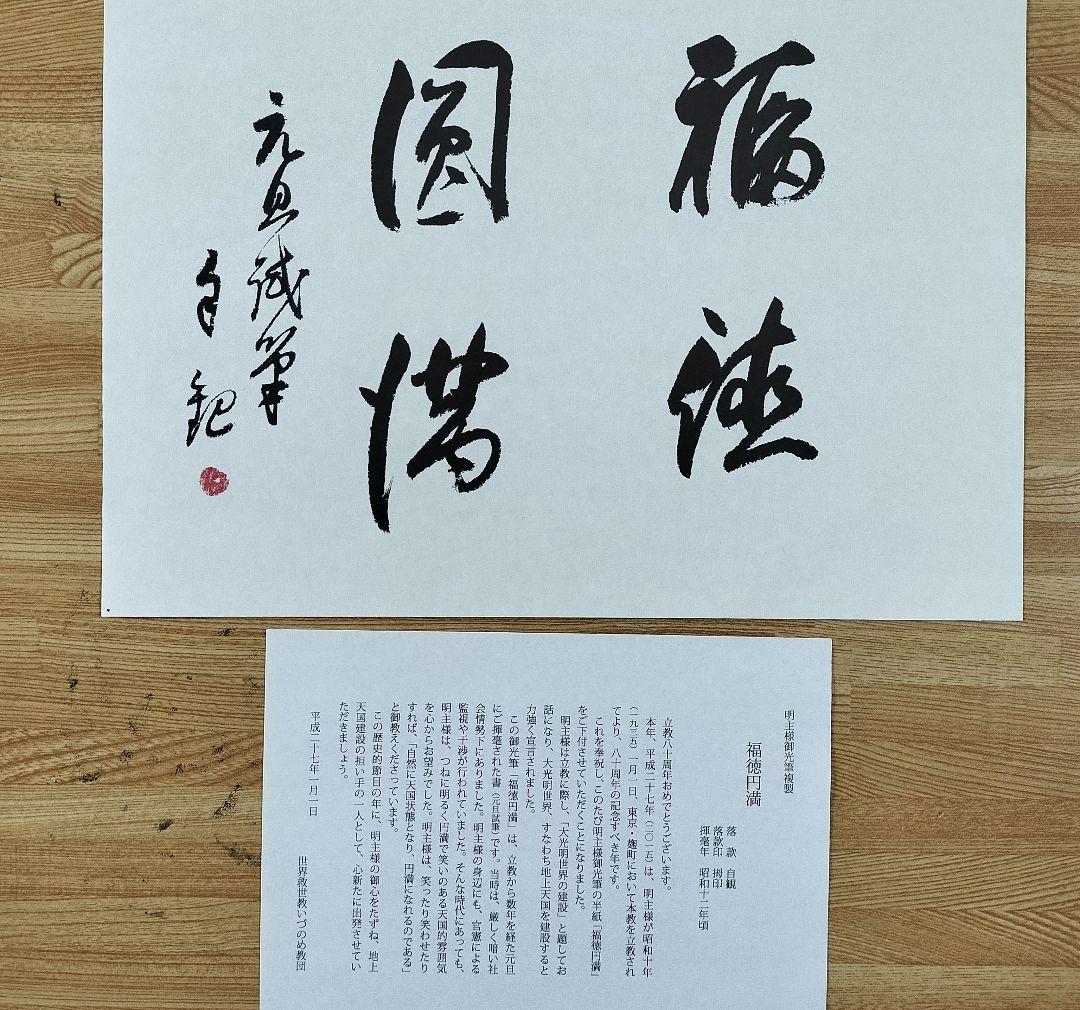 福徳
圓満
元旦試筆
自観
明主様御光筆複製
福徳円満
落　款　自観
落款印　拇印
揮毫年　昭和十二年頃
立教八十周年おめでとうございます。
本年、平成二十七年（二〇一五）は、明主様が昭和十年
（一九三五）一月一日、東京・麹町において本教を立教され
てより、八十周年の記念すべき年です。
これを奉祝し、このたび明主様御光筆の半紙「福徳円満」
をご下付させていただくことになりました。
明主様は立教に際し、「大光明世界の建設」と題してお
話になり、大光明世界、すなわち地上天国を建設すると
力強く宣言されました。
この御光筆「福徳円満」は、立教から数年を経た元旦
にご揮毫された書（元旦試筆）です。当時は、厳しく暗い社
会情勢下にありました。明主様の身辺にも、官憲による
監視や干渉が行われていました。そんな時代にあっても、
明主様は、つねに明るく円満で笑いのある天国的雰囲気
を心からお望みでした。明主様は、笑ったり笑わせたり
すれば、「自然に天国状態となり、円満になれるのである」
と御教えくださっています。
この歴史的節目の年に、明主様の御心をたずね、地上
天国建設の担い手の一人として、心新たに出発させてい
ただきましょう。
平成二十七年一月一日
世界救世教いづのめ教団